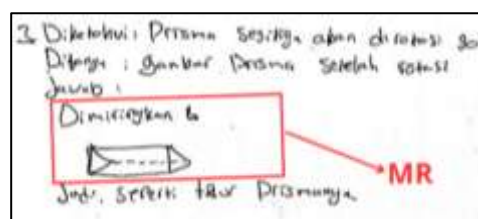 3. Diketahui: Prisma segitiga akan dirotasi
Ditanya: gambar Prisma setelah rotasi
Jawab:
Dimiringkan
MR
Jadi, seperti Prismanya